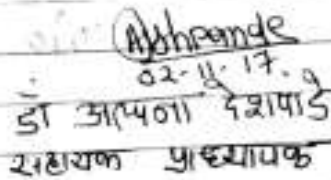 Deshpande
02-11-17.
डॉ अल्पना देशपांडे
सहायक प्राध्यापक